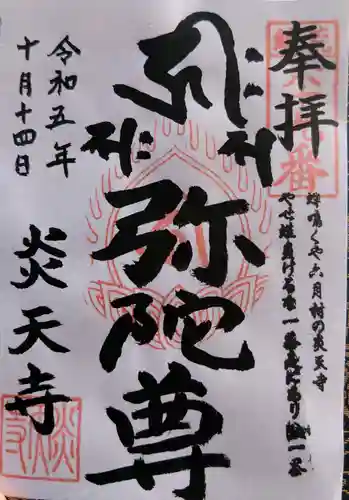 奉拝
蝉鳴くや六月村の炎天寺
やせ蛙負けるな一茶是にあり 一茶
弥陀尊
令和五年
十月十四日
炎天寺